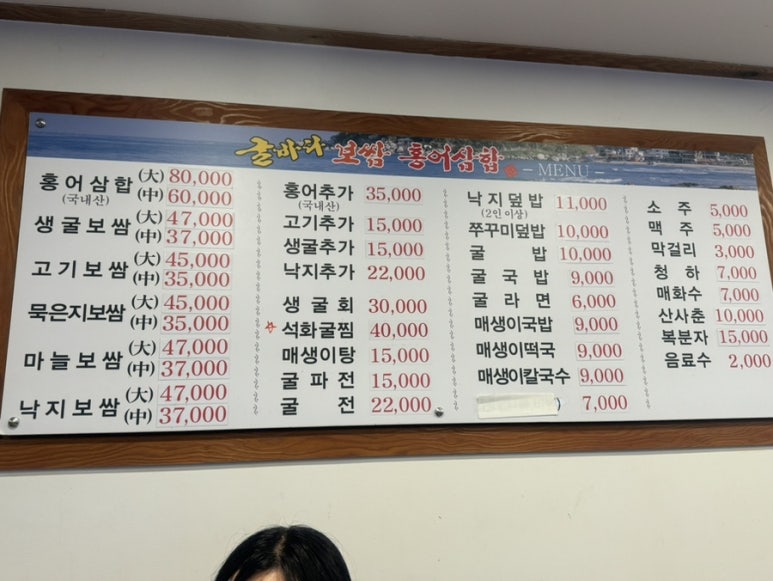 굴바다 보쌈 홍어삼합 - MENU -
홍어삼합 (大) 80,000
(국내산) (中) 60,000
생굴보쌈 (大) 47,000
(中) 37,000
고기보쌈 (大) 45,000
(中) 35,000
묵은지보쌈 (大) 45,000
(中) 35,000
마늘보쌈 (大) 47,000
(中) 37,000
낙지보쌈 (大) 47,000
(中) 37,000
홍어추가 35,000
(국내산)
고기추가 15,000
생굴추가 15,000
낙지추가 22,000
생굴회 30,000
석화굴찜 40,000
매생이탕 15,000
굴파전 15,000
굴전 22,000
낙지덮밥 11,000
(2인 이상)
쭈꾸미덮밥 10,000
굴밥 10,000
굴국밥 9,000
굴라면 6,000
매생이국밥 9,000
매생이떡국 9,000
매생이칼국수 9,000
) 7,000
소주 5,000
맥주 5,000
막걸리 3,000
청하 7,000
매화수 7,000
산사춘 10,000
복분자 15,000
음료수 2,000